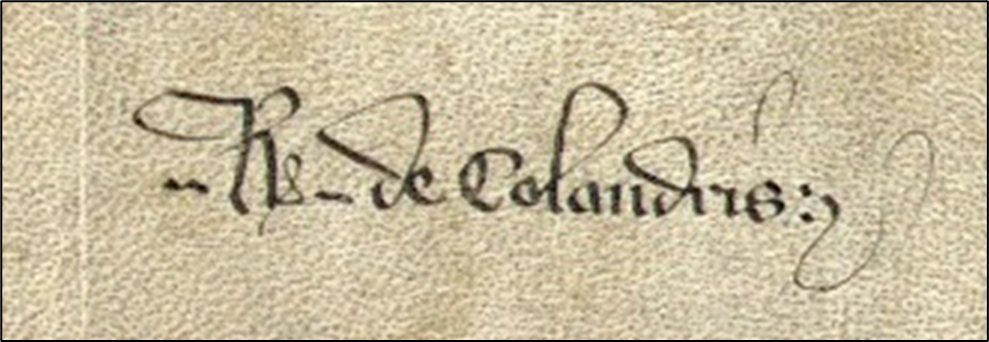 de Colandris